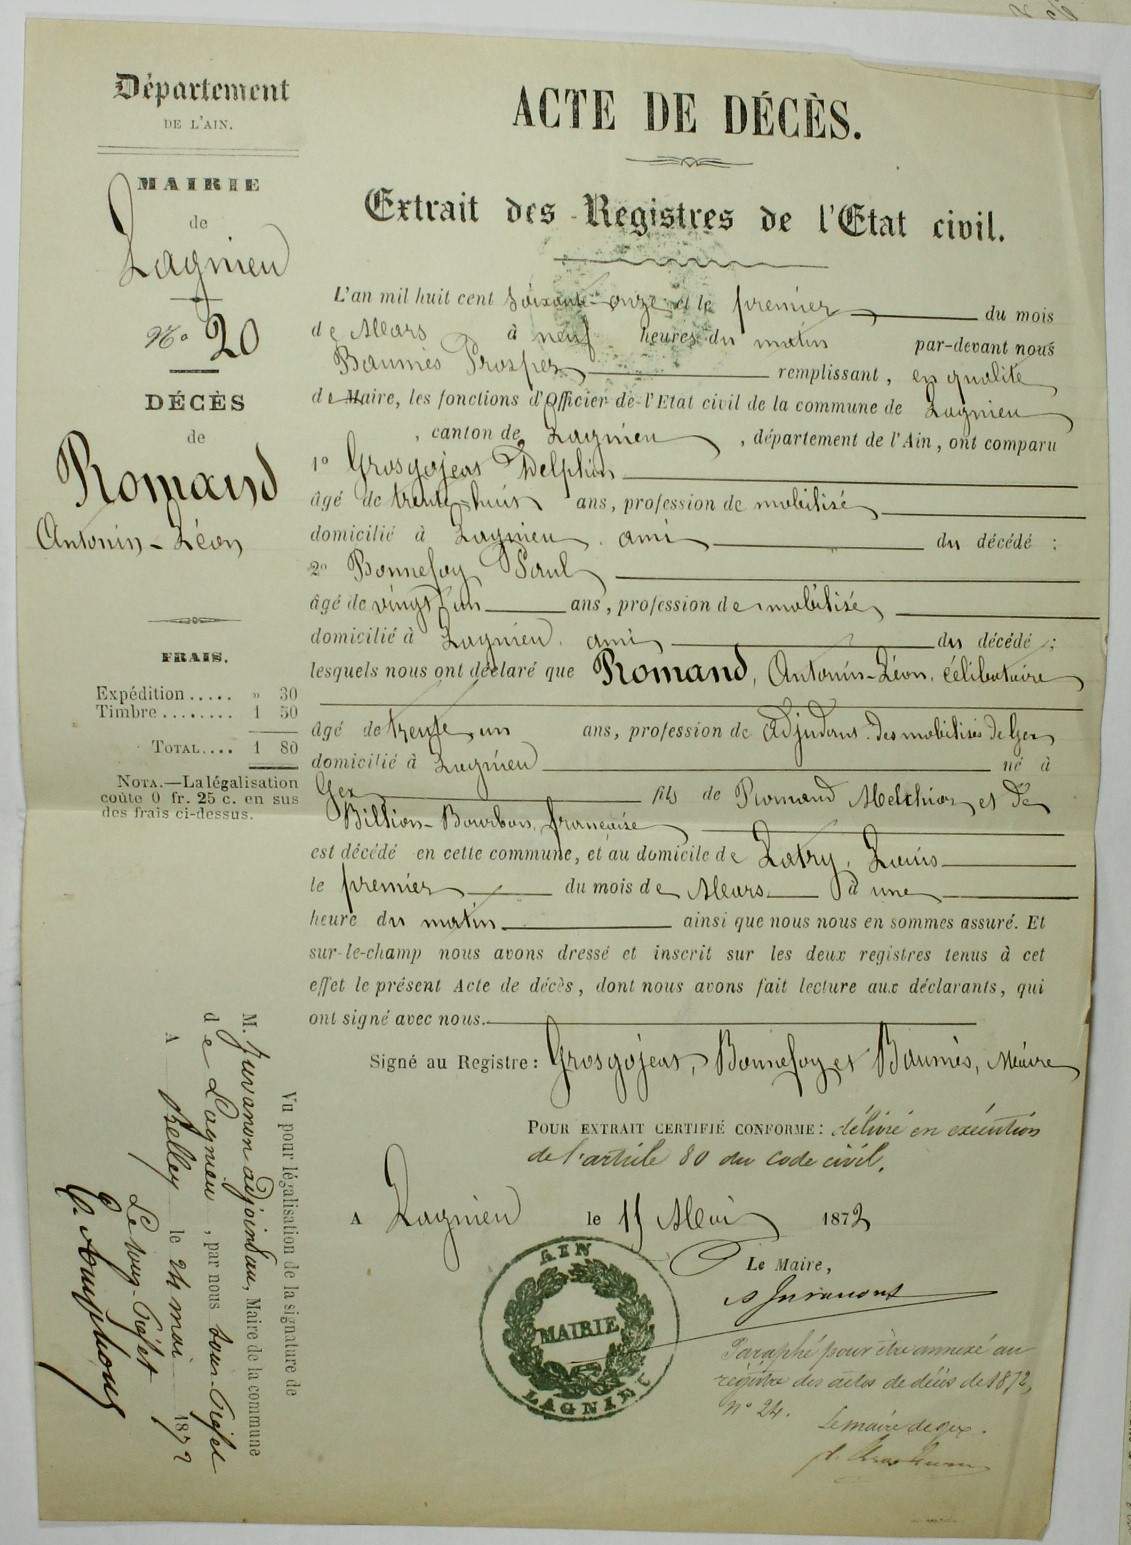 Département
DE L'AIN.
MAIRIE
de
Lagnieu
No 20
DÉCÈS
de
Romand
Antonin-Léon
FRAIS.
Expédition ..... » 30
Timbre ........ 1 50
TOTAL.... 1 80
NOTA.—La légalisation
coûte 0 fr. 25 c. en sus
des frais ci-dessus.
ACTE DE DÉCÈS.
Extrait des Registres de l'Etat civil.
L'an mil huit cent soixante-onze et le premier du mois
de Mars à neuf heures du matin par-devant nous
Baumès Prosper remplissant, en qualité
de Maire, les fonctions d'Officier de l'Etat civil de la commune de Lagnieu
, canton de Lagnieu, département de l'Ain, ont comparu
1o Grosgojeat Delphin
âgé de trente-huit ans, profession de mobilisé
domicilié à Lagnieu. ami du décédé ;
2o Bonnefoy Paul
âgé de vingt un ans, profession de mobilisé
domicilié à Lagnieu. ami du décédé ;
lesquels nous ont déclaré que Romand, Antonin-Léon, célibataire
âgé de trente un ans, profession de adjudant des mobilisés de Gex
domicilié à Lagnieu né à
Gex fils de Romand Melchior et de
Billion-Bourbon, françoise
est décédé en cette commune, et au domicile de Latry, Louis
le premier du mois de Mars à une
heure du matin ainsi que nous nous en sommes assuré. Et
sur-le-champ nous avons dressé et inscrit sur les deux registres tenus à cet
effet le présent Acte de décès, dont nous avons fait lecture aux déclarants, qui
ont signé avec nous.
Signé au Registre : Grosgojeat, Bonnefoy et Baumès, Maire
POUR EXTRAIT CERTIFIÉ CONFORME : délivré en exécution
de l'article 80 du code civil.
A Lagnieu le 15 Mai 1872
Le Maire,
AIN
MAIRIE
LAGNIEU
Paraphé pour être annexé au
registre des actes de décès de 1872,
No 24.
Le maire de gex.
Vu pour légalisation de la signature de
M. Juvanon adjoint au, Maire de la commune
de Lagnieu, par nous sous-Préfet
A Belley le 24 mai 1872
Le sous-Préfet